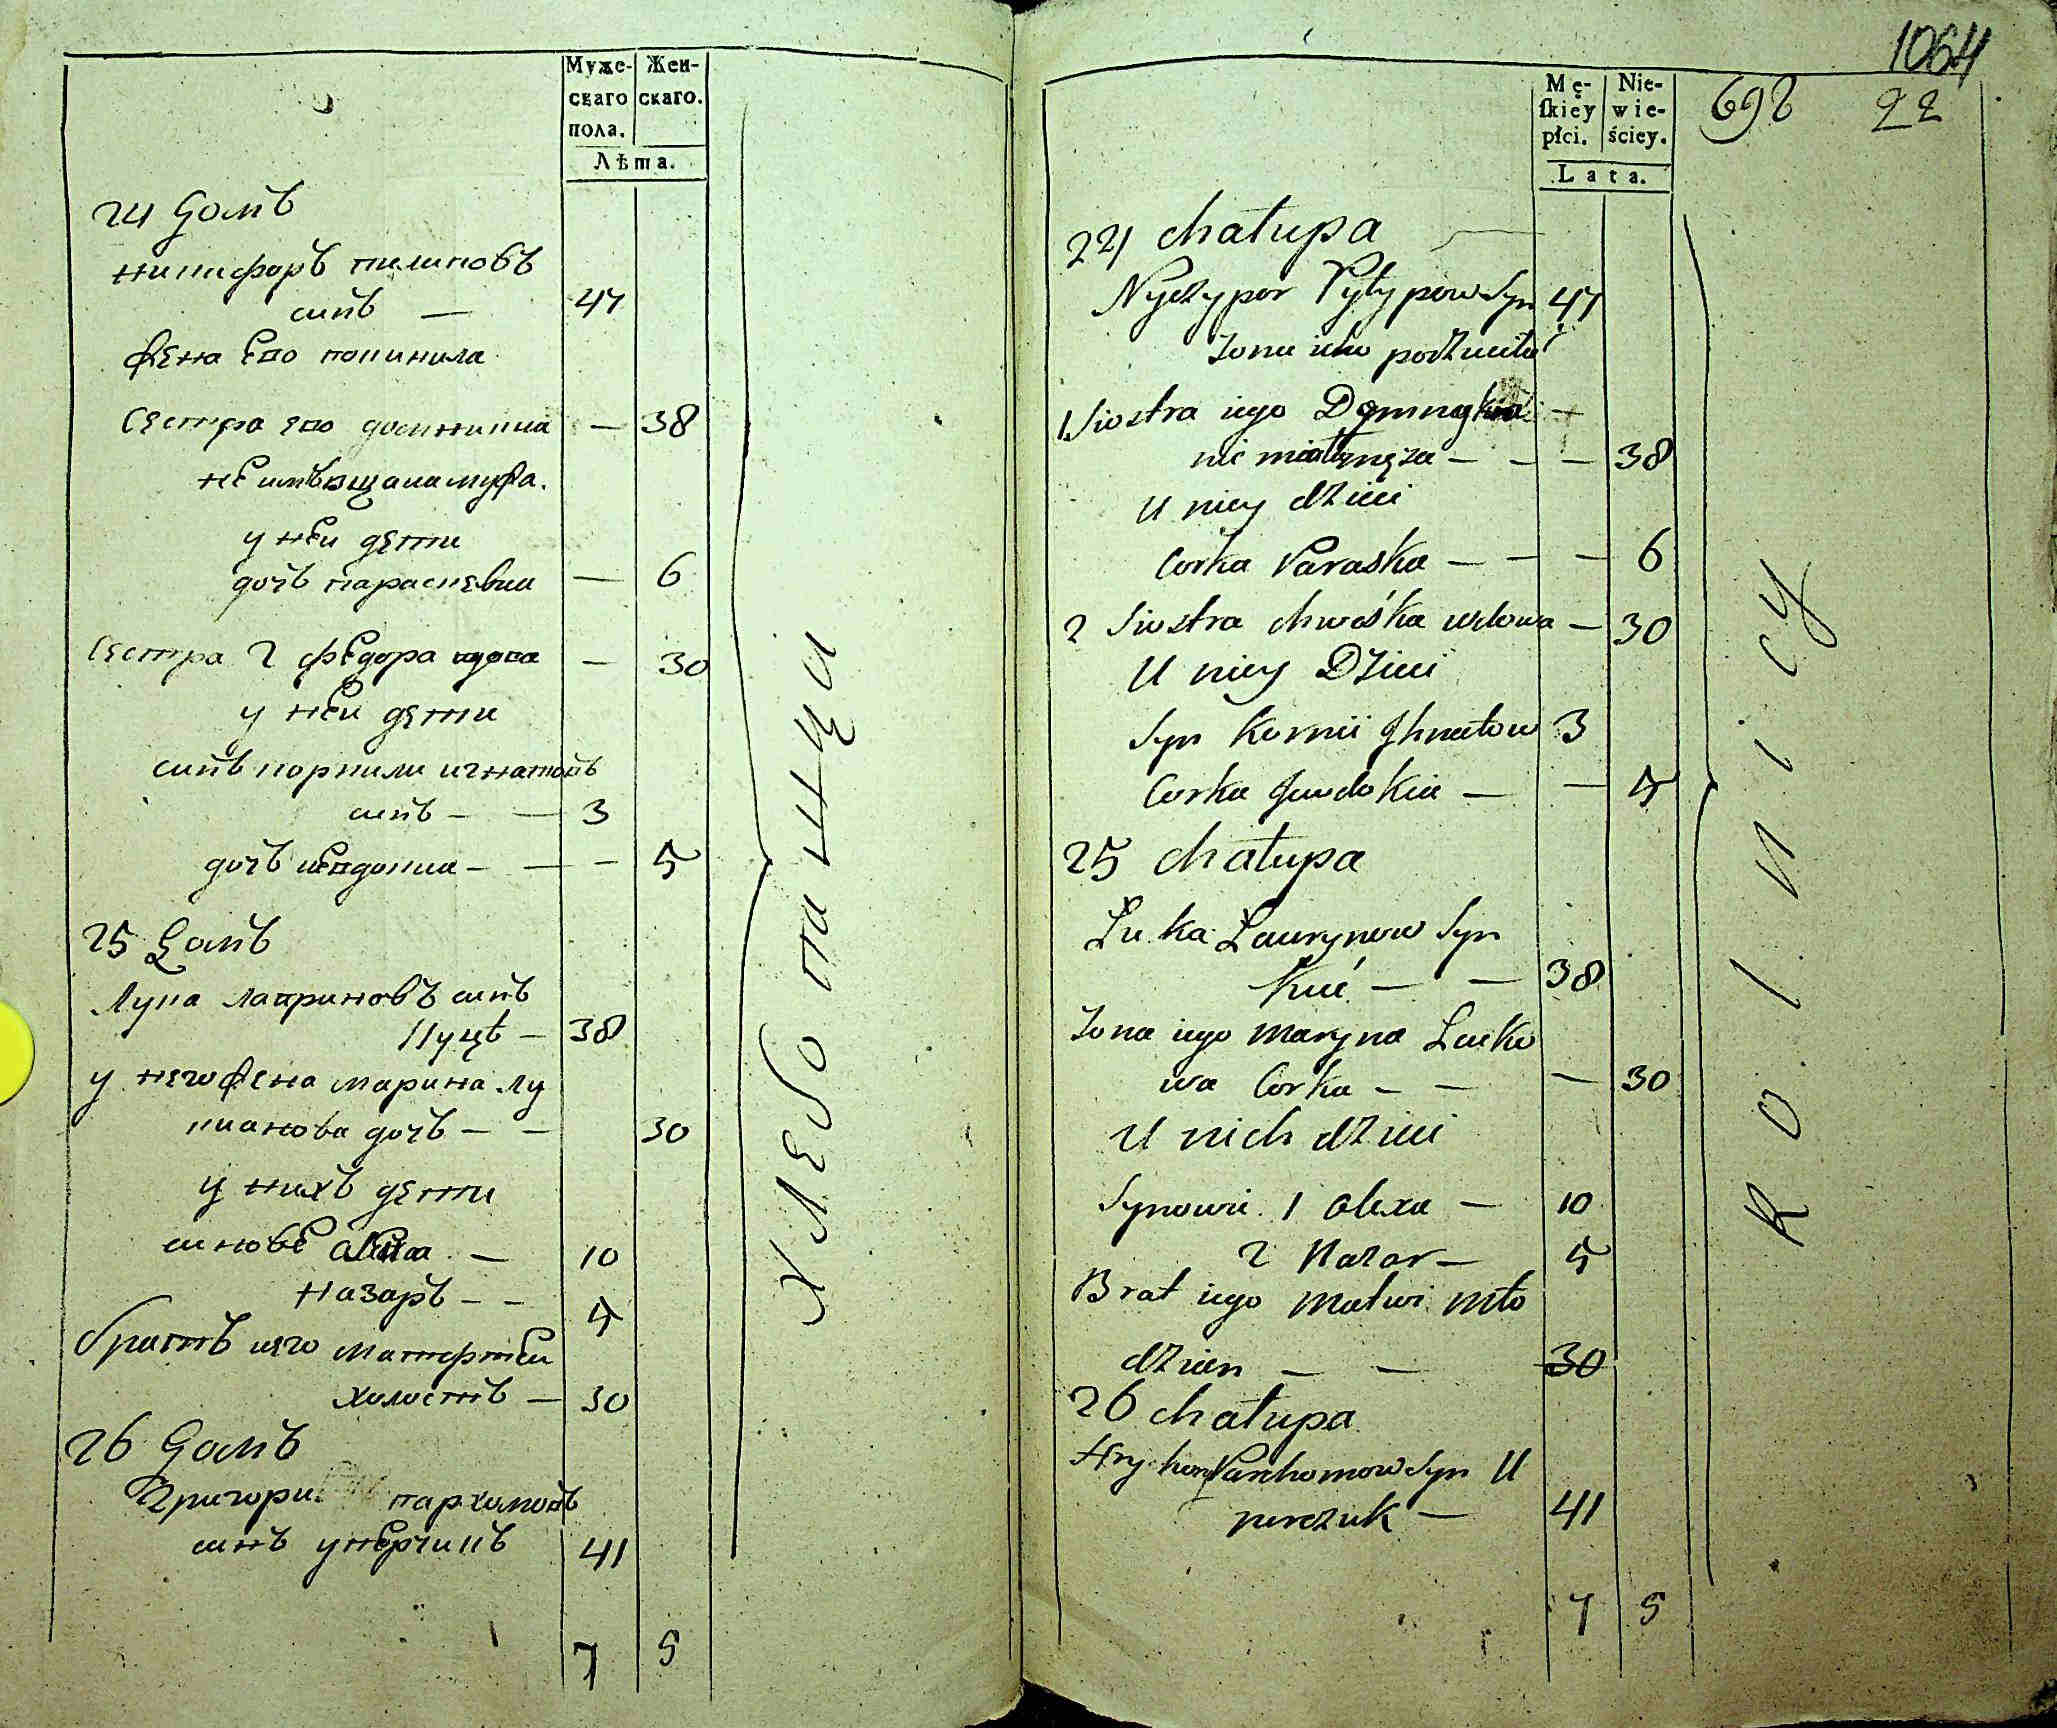 Муже-
скаго
пола.
Жен-
скаго.
Лѣта.
24 домъ
никифоръ пилиповъ
синъ — 47
жена его покинула
сестра его домникиа — 38
не имѣвшаиа мужа.
у неи дети
дочъ параскевиа — 6
сестра 2 федора вдова — 30
у неи дети
синъ корнили игнатовъ
синъ — — 3
дочъ иевдокиа — — — 5
25 домъ
Лука лавриновъ синъ
Куцъ — 38
у него жена марина лу
кианова дочъ — — 30
у нихъ дети
синове — 10
назаръ — — 5
братъ иего матфеи
холостъ — 30
26 домъ
Григори пархомовъ
синъ 41
7 5
хлебопашци
1064
692 22
Mę-
skiey
płci.
Nie-
wie-
ściey.
Lata.
24 chałupa
Nyczypor Pyłypow Syn 47
żona iho porzuciła
1 Siostra iego Domnykia —
nie miała męża — — — 38
U niey dzieci
Corka Paraska — — — 6
2 Siostra chweśka wdowa — 30
U niey Dzieci
Syn Kornii Ihnatow 3
Corka Jewdokia — — 5
25 chałupa
Łuka Ławrynow Syn
Kuć — — 38
Zona iego Maryna Łuko
wa Corka — — — 30
U nich dzieci
Synowie 1 olexa — 10
2 Nazar — 5
Brat iego Matwi Mło
dzian — — 30
26 chałupa
Hryhory Parchomow Syn U
nerczuk — 41
7 5
Rolnicy